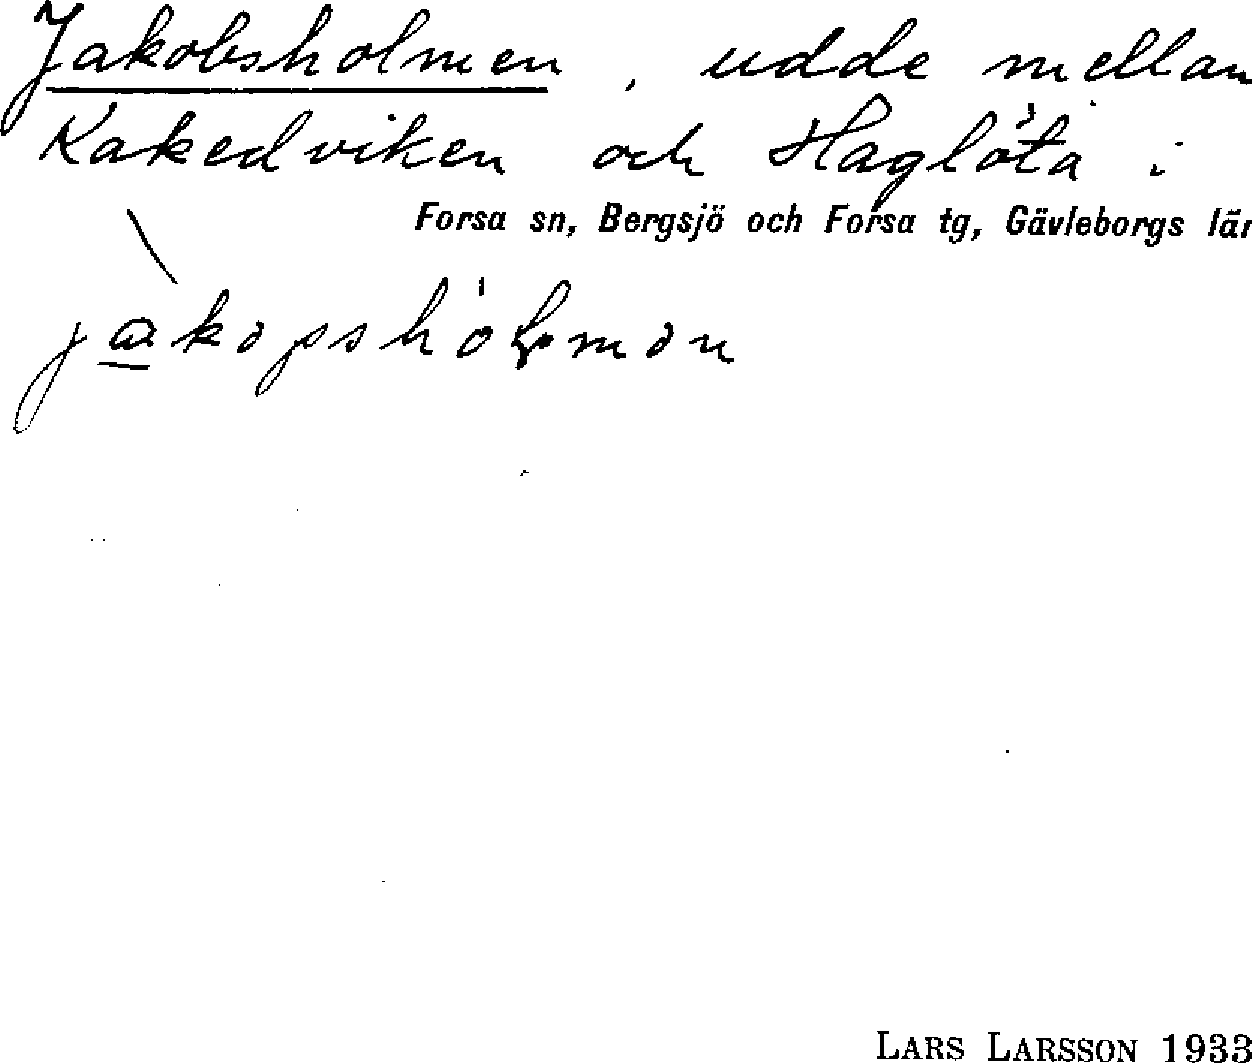 Jakobsholmen, udde mellan
Kakedviken och Haglöta i
Forsa sn, Bergsjö och Forsa tg, Gävleborgs län
LARS LARSSON 1933